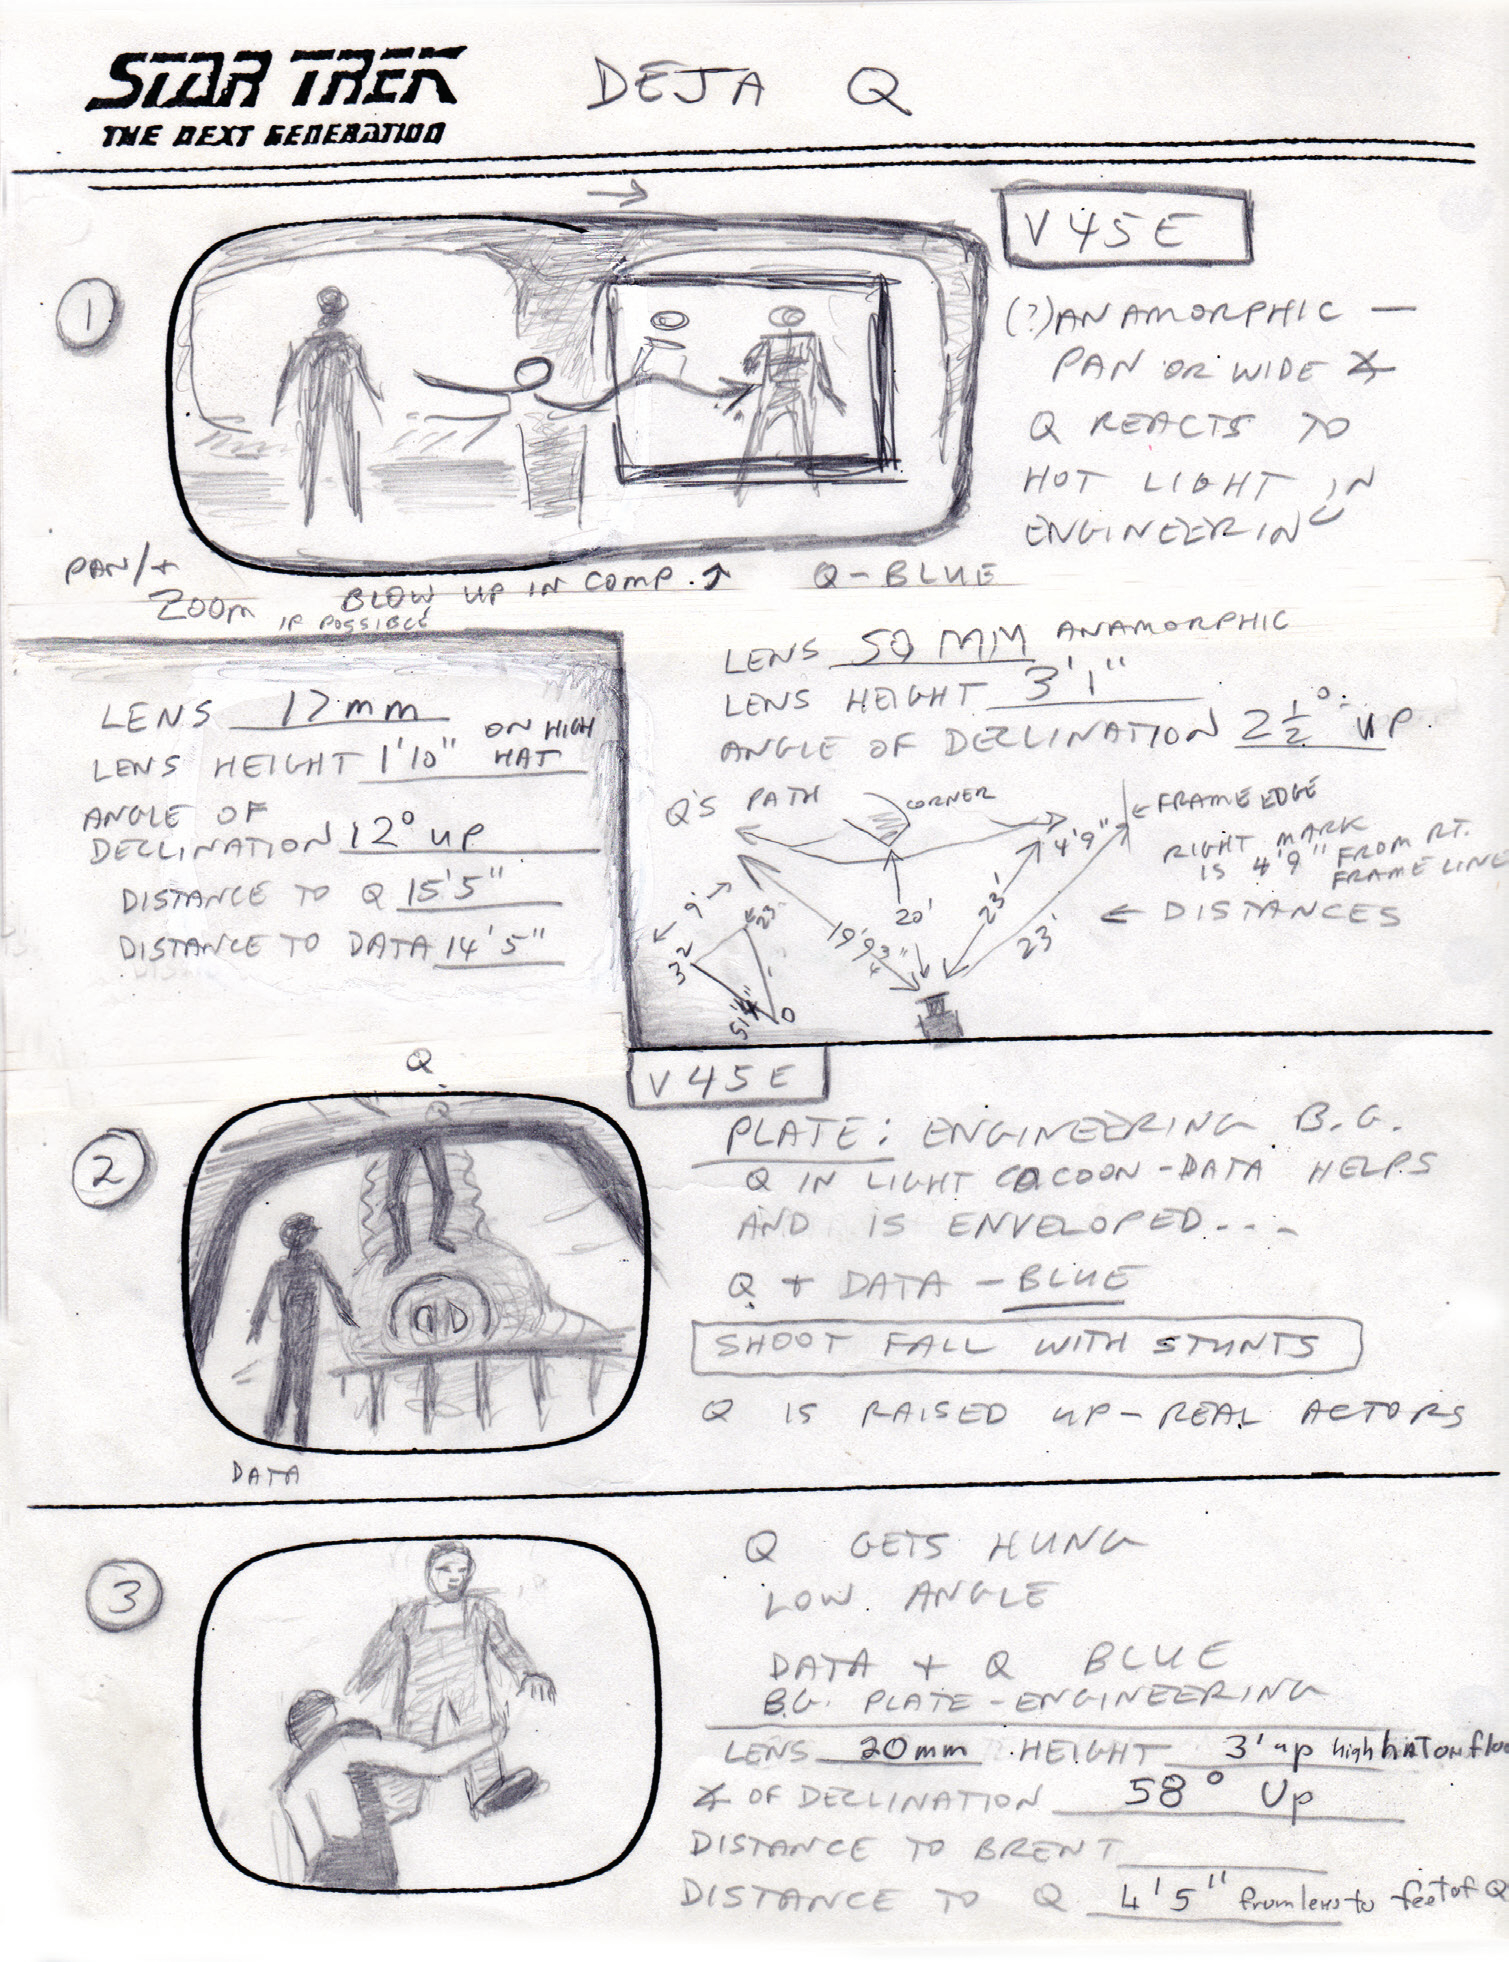 STAR TREK
THE NEXT GENERATION
DEJA Q
1
V45E
(?)ANAMORPHIC —
PAN OR WIDE ∡
Q REACTS TO
HOT LIGHT IN
ENGINEERING
PAN/+
ZOOM
IF POSSIBLE
BLOW UP IN COMP.
Q-BLUE
LENS 17mm
LENS HEIGHT 1'10" ON HIGH HAT
ANGLE OF
DECLINATION 12° UP
DISTANCE TO Q 15'5"
DISTANCE TO DATA 14'5"
LENS 50 MM ANAMORPHIC
LENS HEIGHT 3'1"
ANGLE OF DECLINATION 2½° UP.
Q'S PATH
CORNER
← FRAME EDGE
4'9"
RIGHT MARK
IS 4'9" FROM RT.
FRAME LINE
9'
23'
32
20'
23'
23'
← DISTANCES
Q
Q
2
V45E
PLATE: ENGINEERING B.G.
Q IN LIGHT COCOON-DATA HELPS
AND IS ENVELOPED...-
Q + DATA - BLUE
SHOOT FALL WITH STUNTS
Q IS RAISED UP-REAL ACTORS
DATA
3
Q GETS HUNG
LOW ANGLE
DATA + Q BLUE
B.G. PLATE-ENGINEERING
LENS 20mm HEIGHT 3' up high HAT ON
∡ OF DECLINATION 58° Up
DISTANCE TO BRENT
DISTANCE TO Q 4'5" from lens to feet of Q